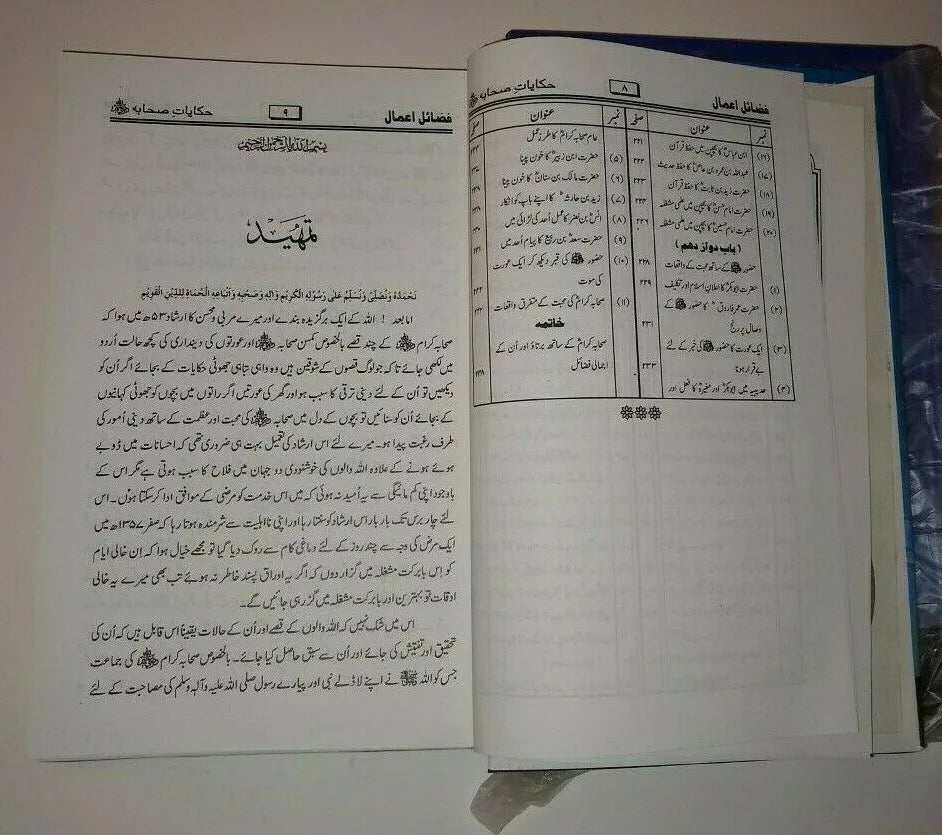 فضائل اعمال ۸ حکایاتِ صحابہ
نمبر عنوان صفحہ
(۱۶) ابن عباسؓ کا بچپن میں حفظ قرآن ۲۲۱
(۱۷) عبداللہ بن عمرو بن عاصؓ کا حفظ حدیث ۲۲۲
(۱۸) حضرت زید بن ثابتؓ کا حفظ قرآن ۲۲۳
(۱۹) حضرت امام حسنؓ کا بچپن میں علمی مشغلہ ۲۲۴
(۲۰) حضرت امام حسینؓ کا بچپن میں علمی مشغلہ ۲۲۶
(باب دواز دھم)
حضور ﷺ کے ساتھ محبت کے واقعات ۲۲۸
(۱) حضرت ابوبکرؓ کا اعلان اسلام اور تکلیف ۲۲۹
(۲) حضرت عمر فاروقؓ کا حضور ﷺ کے
وصال پر رنج ۲۳۱
(۳) ایک عورت کا حضور ﷺ کی خبر کے لئے
بے قرار ہونا ۲۳۳
(۴) حدیبیہ میں ابوبکرؓ اور مغیرہؓ کا فعل اور
نمبر عنوان صفحہ
عام صحابہ کرامؓ کا طرز عمل
(۵) حضرت ابن زبیرؓ کا خون پینا
(۶) حضرت مالک بن سنانؓ کا خون پینا
(۷) زید بن حارثہؓ کا اپنے باپ کو انکار
(۸) انسؓ بن نضر کا عمل اُحد کی لڑائی میں
(۹) حضرت سعدؓ بن ربیع کا پیام اُحد میں
(۱۰) حضور ﷺ کی قبر دیکھ کر ایک عورت
کی موت
(۱۱) صحابہ کرامؓ کی محبت کے متفرق واقعات
خاتمہ
صحابہ کرامؓ کے ساتھ برتاؤ اور اُن کے
اجمالی فضائل
فضائل اعمال ۹ حکایاتِ صحابہ
بسم اللہ الرحمن الرحیم
تمہید
نَحْمَدُهٗ وَنُصَلِّیْ وَنُسَلِّمُ عَلٰی رَسُوْلِهِ الْکَرِیْمِ وَاٰلِهٖ وَصَحْبِهٖ وَاَتْبَاعِهِ الْحُمَاةِ لِلدِّیْنِ الْقَوِیْمِ
اما بعد! اللہ کے ایک برگزیدہ بندے اور میرے مربی و محسن کا ارشاد ۵۳ھ میں ہوا کہ
صحابہ کرام ﷺ کے چند قصے بالخصوص کمسن صحابہ اور عورتوں کی دینداری کی کچھ حالت اُردو
میں لکھی جائے تاکہ جو لوگ قصوں کے شوقین ہیں وہ واہی تباہی جھوٹی حکایات کے بجائے اگر اُن کو
دیکھیں تو اُن کے لئے دینی ترقی کا سبب ہو اور گھر کی عورتیں اگر راتوں میں بچوں کو جھوٹی کہانیوں
کے بجائے اُن کو سنائیں تو بچوں کے دل میں صحابہ کی محبت اور عظمت کے ساتھ دینی اُمور کی
طرف رغبت پیدا ہو۔ میرے لئے اس ارشاد کی تعمیل بہت ہی ضروری تھی کہ احسانات میں ڈوبے
ہوئے ہونے کے علاوہ اللہ والوں کی خوشنودی دو جہان میں فلاح کا سبب ہوتی ہے مگر اس کے
باوجود اپنی کم مائیگی سے یہ اُمید نہ ہوئی کہ میں اس خدمت کو مرضی کے موافق ادا کرسکتا ہوں۔ اس
لئے چار برس تک بار بار اس ارشاد کو سنتا رہا اور اپنی نااہلیت سے شرمندہ ہوتا رہا کہ صفر ۱۳۵۷ھ میں
ایک مرض کی وجہ سے چند روز کے لئے دماغی کام سے روک دیا گیا تو مجھے خیال ہوا کہ ان خالی ایام
کو اِس بابرکت مشغلہ میں گزار دوں کہ اگر یہ اوراق پسند خاطر نہ ہوئے تب بھی میرے یہ خالی
اوقات تو بہترین اور بابرکت مشغلہ میں گزر ہی جائیں گے۔
اس میں شک نہیں کہ اللہ والوں کے قصے اور اُن کے حالات یقیناً اس قابل ہیں کہ اُن کی
تحقیق اور تفتیش کی جائے اور اُن سے سبق حاصل کیا جائے۔ بالخصوص صحابہ کرام کی جماعت
جس کو اللہ نے اپنے لاڈلے نبی اور پیارے رسول صلی اللہ علیہ وآلہ وسلم کی مصاحبت کے لئے